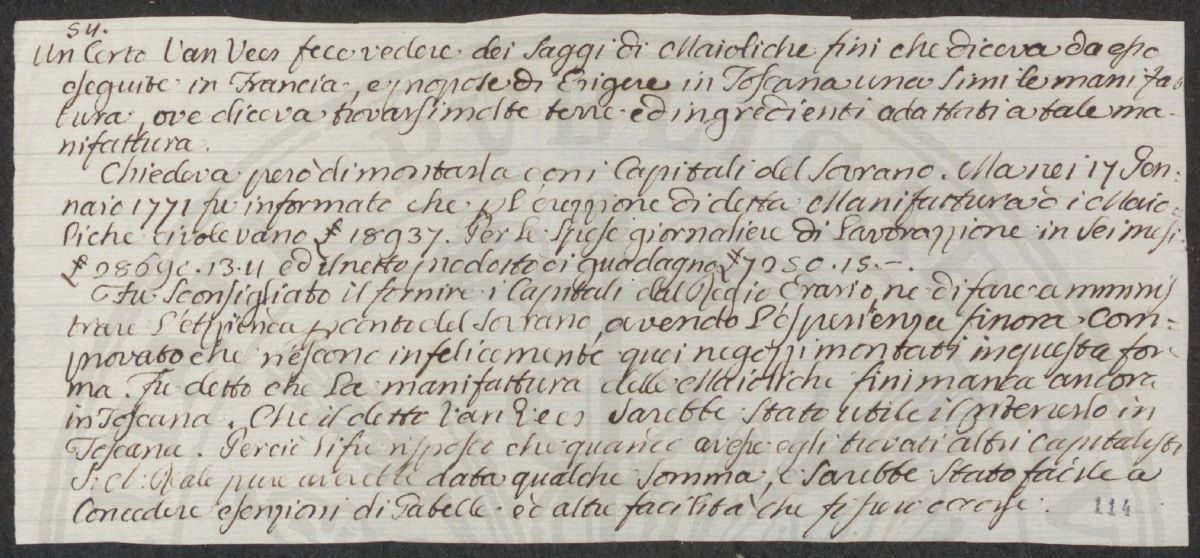 su.
Un Certo Van Vees fece vedere dei Saggi di Maioliche fini che diceva da esso
eseguite in Francia, e propose di Erigere in Toscana una Simile manifat
tura, ove diceva trovarsi molte terre ed ingredienti adattati a tale ma-
nifattura.
Chiedeva però di montarla con i Capitali del Sovrano. Ma nei 17 Gen-
naio 1771 fu informato che pl'erezzione di detta Manifattura di Maio-
liche ci volevano £ 18937. Per le Spese giornaliere di Lavorazzione in Sei mesi
£ 28690.13.4 ed il netto prodotto di guadagno £ 7250.15.-.
Fu Sconsigliato il fornire i Capitali dal Regio Erario, ne di fare ammini
trare l' pconto del Sovrano, avendo l'esperienza finora com-
provato che riescono infelicemente quei negozzi montati in questa for
ma. Fu detto che La manifattura delle Maioliche fini manca ancora
in Toscana. Che il detto Van Vees Sarebbe Stato utile il ritenerlo in
Toscana. Perciò li fu risposto che quando avesse egli trovati altri capitalisti
S: A: Reale pure averebbe data qualche Somma, e Sarebbe Stato facile a
Concedere esenzioni di Gabelle ed altre facilità che si
114